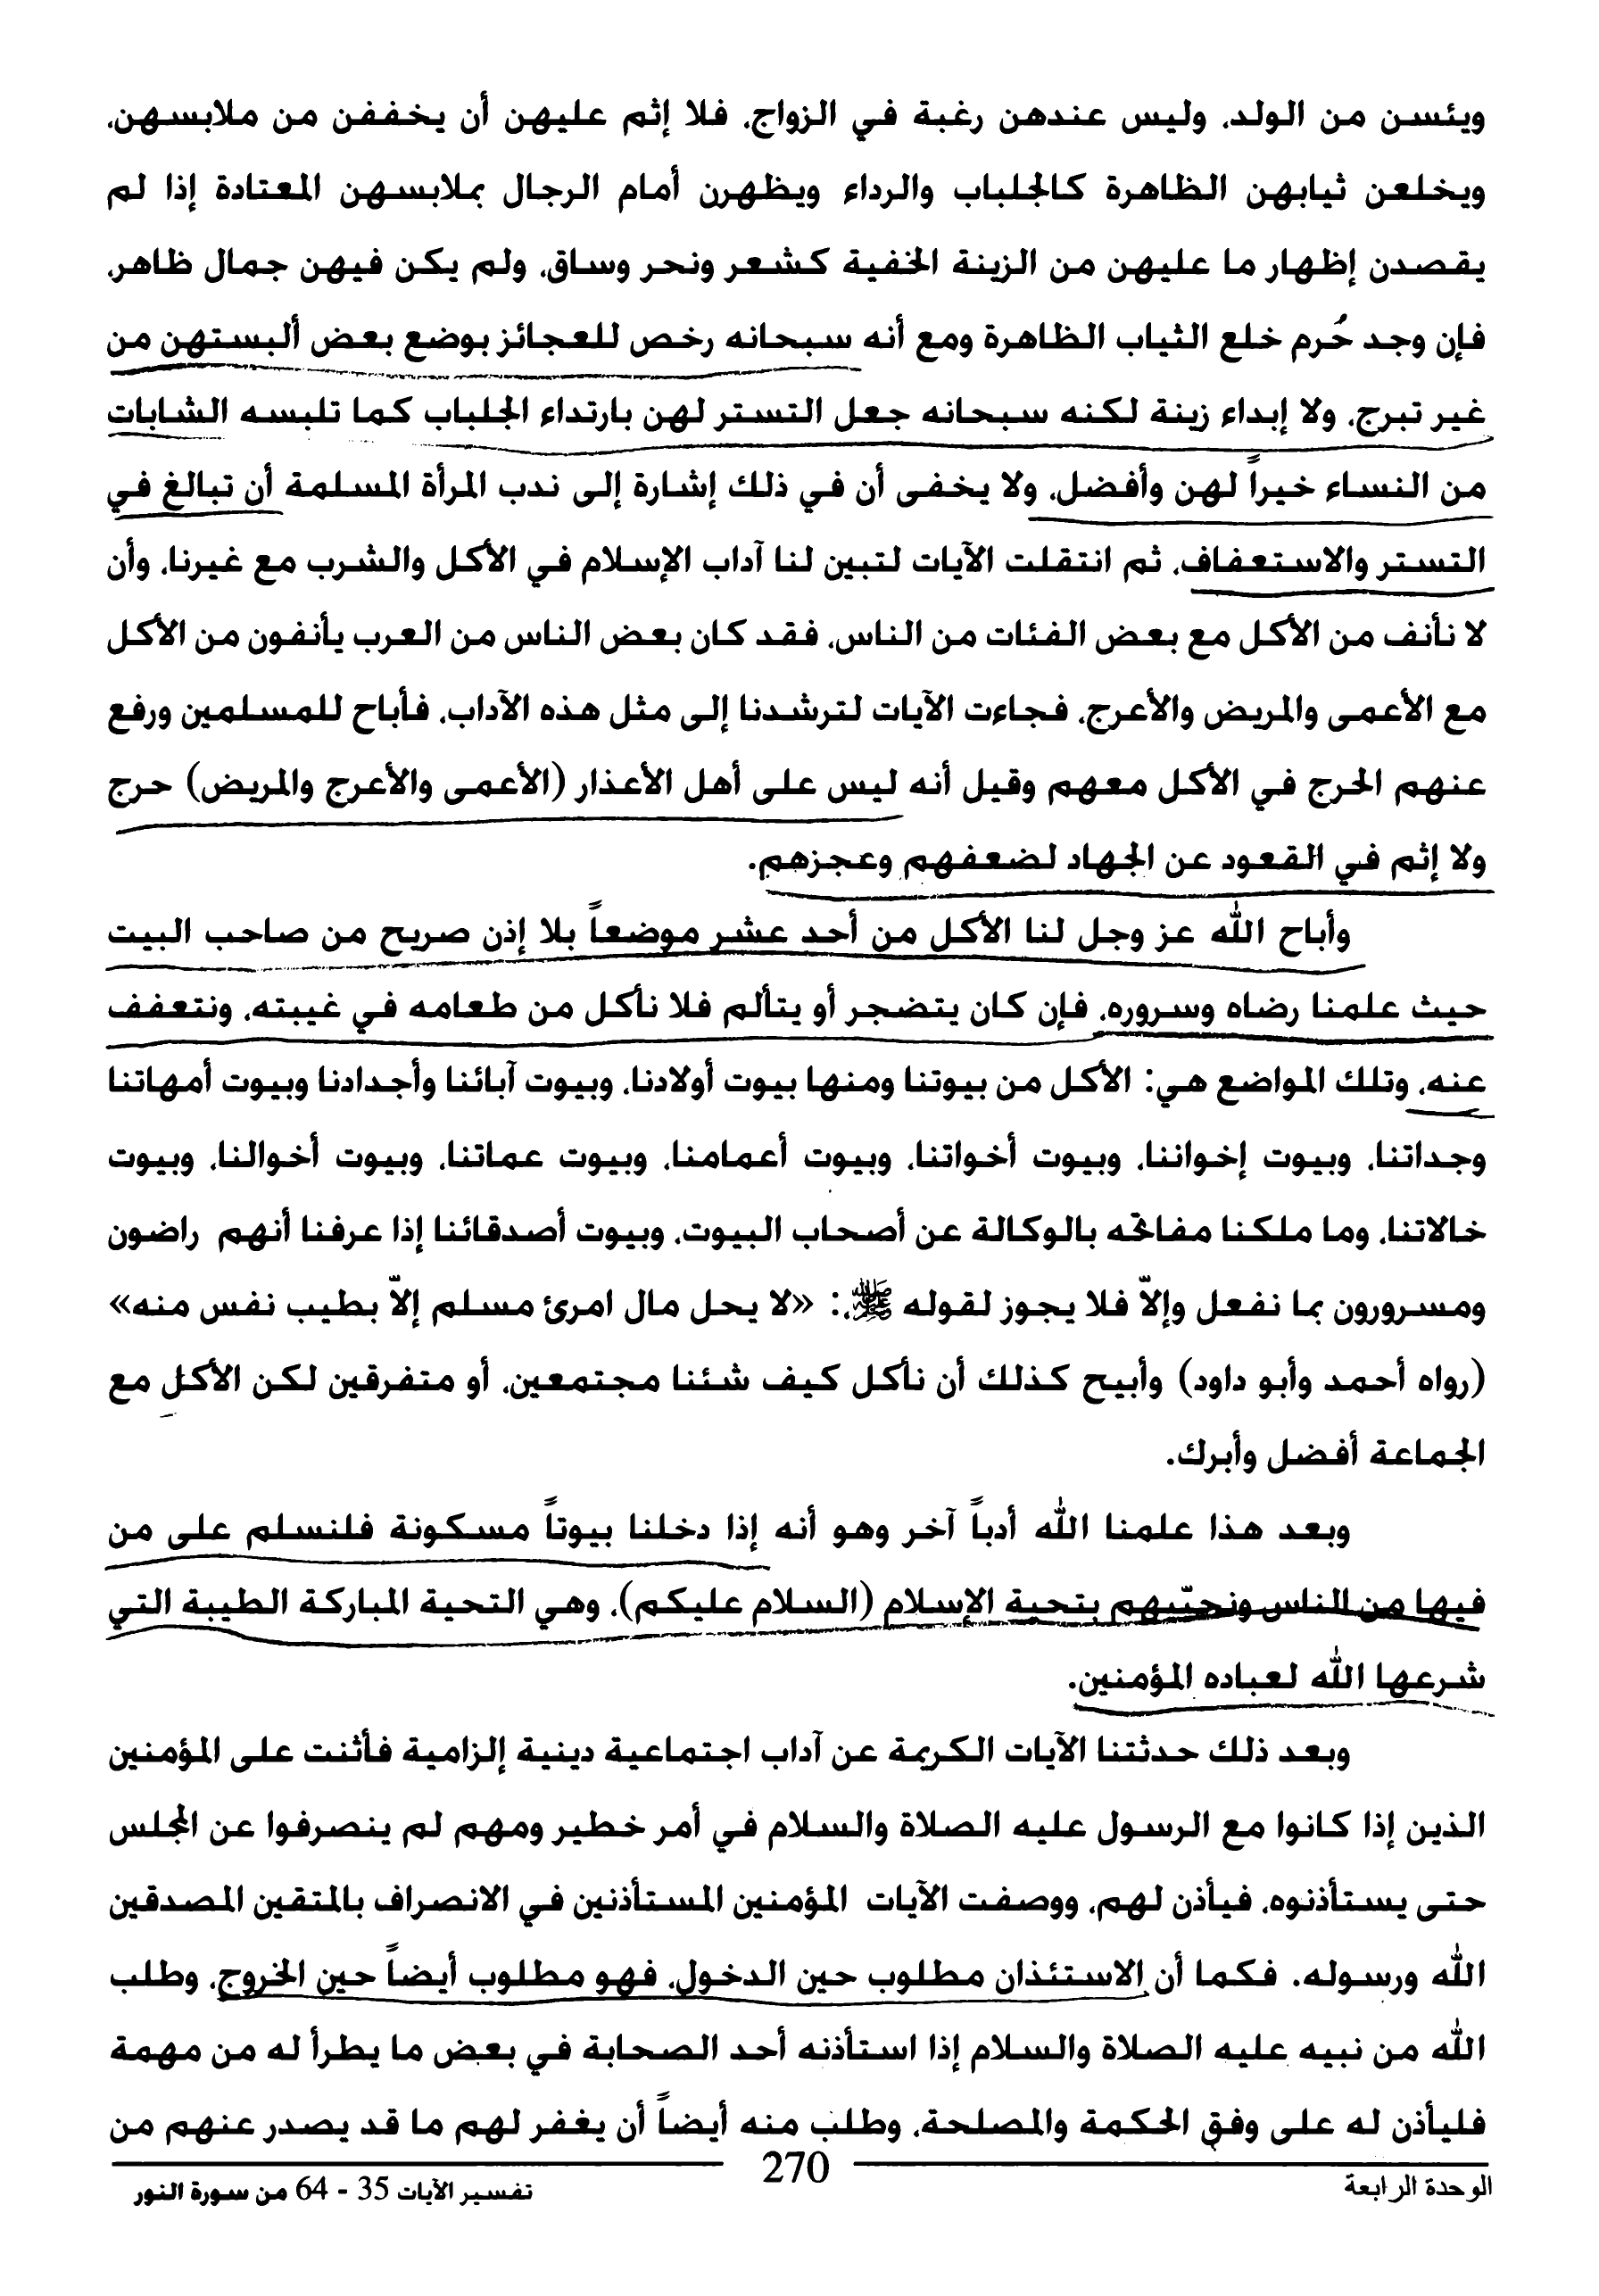 ويئسن من الولد، وليس عندهن رغبة في الزواج، فلا إثم عليهن أن يخففن من ملابسهن،
ويخلعن ثيابهن الظاهرة كالجلباب والرداء ويظهرن أمام الرجال بملابسهن المعتادة إذا لم
يقصدن إظهار ما عليهن من الزينة الخفية كشعر ونحر وساق، ولم يكن فيهن جمال ظاهر،
فإن وجد حُرم خلع الثياب الظاهرة ومع أنه سبحانه رخص للعجائز بوضع بعض ألبستهن من
غير تبرج، ولا إبداء زينة لكنه سبحانه جعل التستر لهن بارتداء الجلباب كما تلبسه الشابات
من النساء خيراً لهن وأفضل، ولا يخفى أن في ذلك إشارة إلى ندب المرأة المسلمة أن تبالغ في
التستر والاستعفاف، ثم انتقلت الآيات لتبين لنا آداب الإسلام في الأكل والشرب مع غيرنا، وأن
لا نأنف من الأكل مع بعض الفئات من الناس، فقد كان بعض الناس من العرب يأنفون من الأكل
مع الأعمى والمريض والأعرج، فجاءت الآيات لترشدنا إلى مثل هذه الآداب، فأباح للمسلمين ورفع
عنهم الحرج في الأكل معهم وقيل أنه ليس على أهل الأعذار (الأعمى والأعرج والمريض) حرج
ولا إثم في القعود عن الجهاد لضعفهم وعجزهم.
وأباح الله عز وجل لنا الأكل من أحد عشر موضعاً بلا إذن صريح من صاحب البيت
حيث علمنا رضاه وسروره، فإن كان يتضجر أو يتألم فلا نأكل من طعامه في غيبته، ونتعفف
عنه، وتلك المواضع هي: الأكل من بيوتنا ومنها بيوت أولادنا، وبيوت آبائنا وأجدادنا وبيوت أمهاتنا
وجداتنا، وبيوت إخواننا، وبيوت أخواتنا، وبيوت أعمامنا، وبيوت عماتنا، وبيوت أخوالنا، وبيوت
خالاتنا، وما ملكنا مفاتحه بالوكالة عن أصحاب البيوت، وبيوت أصدقائنا إذا عرفنا أنهم راضون
ومسرورون بما نفعل وإلاّ فلا يجوز لقوله ﷺ: «لا يحل مال امرئ مسلم إلاّ بطيب نفس منه»
(رواه أحمد وأبو داود) وأبيح كذلك أن نأكل كيف شئنا مجتمعين، أو متفرقين لكن الأكل مع
الجماعة أفضل وأبرك.
وبعد هذا علمنا الله أدباً آخر وهو أنه إذا دخلنا بيوتاً مسكونة فلنسلم على من
فيها من الناس ونحيّيهم بتحية الإسلام (السلام عليكم)، وهي التحية المباركة الطيبة التي
شرعها الله لعباده المؤمنين.
وبعد ذلك حدثتنا الآيات الكريمة عن آداب اجتماعية دينية إلزامية فأثنت على المؤمنين
الذين إذا كانوا مع الرسول عليه الصلاة والسلام في أمر خطير ومهم لم ينصرفوا عن المجلس
حتى يستأذنوه، فيأذن لهم، ووصفت الآيات المؤمنين المستأذنين في الانصراف بالمتقين المصدقين
الله ورسوله. فكما أن الاستئذان مطلوب حين الدخول، فهو مطلوب أيضاً حين الخروج، وطلب
الله من نبيه عليه الصلاة والسلام إذا استأذنه أحد الصحابة في بعض ما يطرأ له من مهمة
فليأذن له على وفق الحكمة والمصلحة، وطلب منه أيضاً أن يغفر لهم ما قد يصدر عنهم من
الوحدة الرابعة
270
تفسير الآيات 35 - 64 من سورة النور